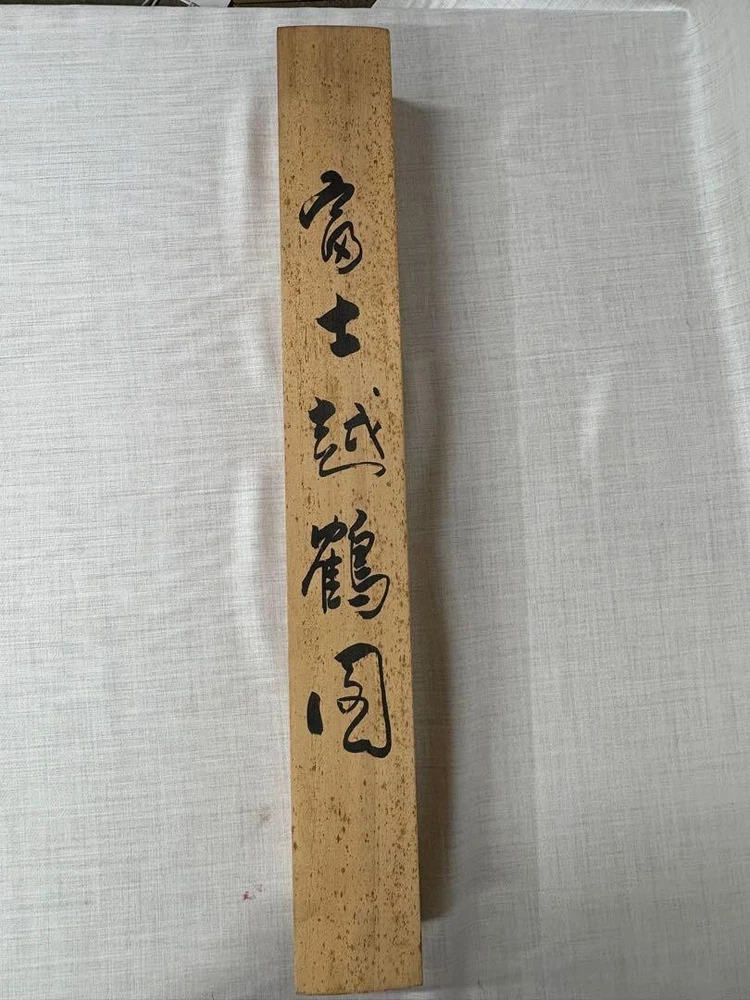 富士越鶴図